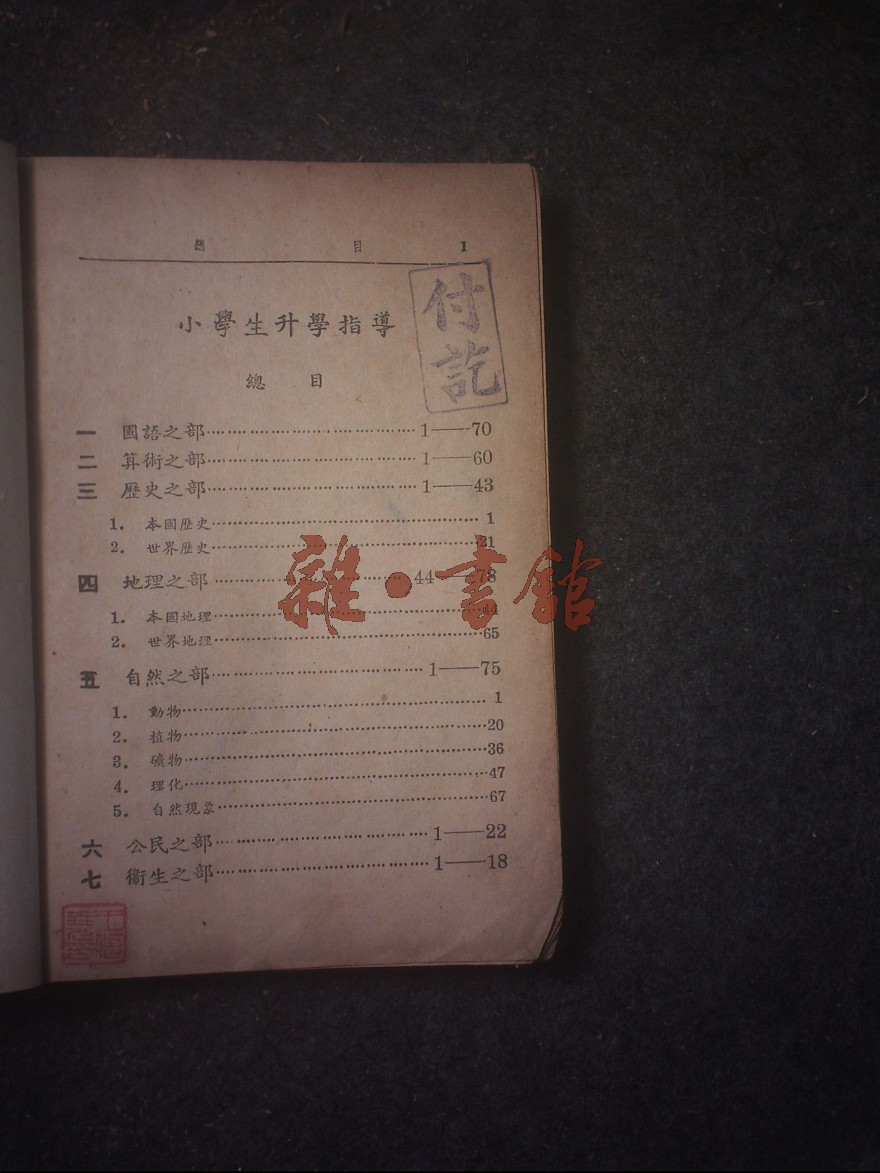 總 目 1
小學生升學指導
付訖
總 目
一 國語之部…………………………1——70
二 算術之部…………………………1——60
三 歷史之部…………………………1——43
1. 本國歷史…………………………1
2. 世界歷史…………………………31
雜·書館
四 地理之部…………………………44——78
1. 本國地理…………………………44
2. 世界地理…………………………65
五 自然之部…………………………1——75
1. 動物…………………………1
2. 植物…………………………20
3. 礦物…………………………36
4. 理化…………………………47
5. 自然現象…………………………67
六 公民之部…………………………1——22
七 衞生之部…………………………1——18